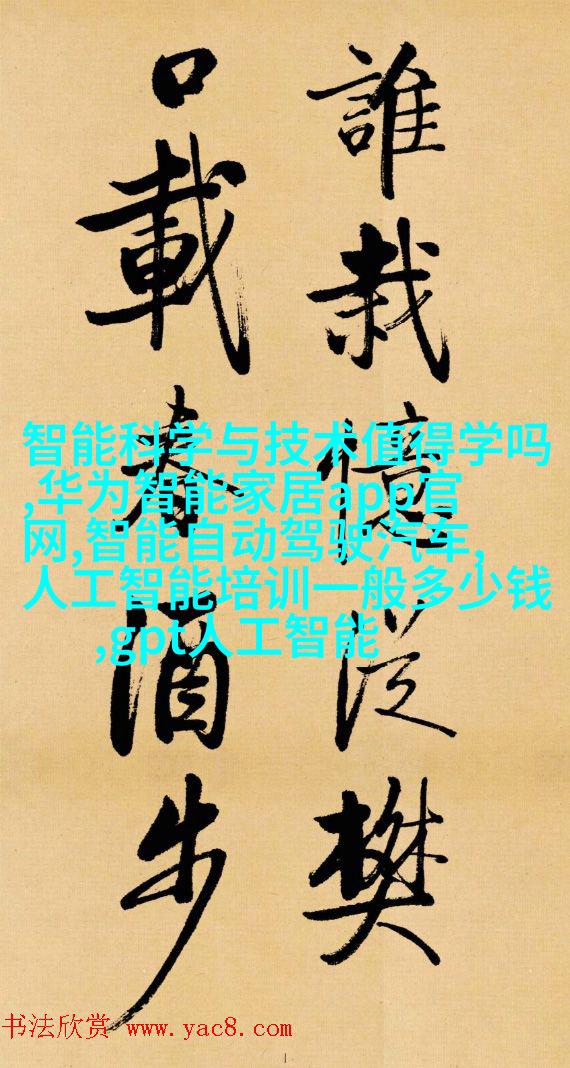 誰栽憶從樊
口載春酒步
智能科学与技术值得学吗
,华为智能家居app官
网,智能自动驾驶汽车,
人工智能培训一般多少钱
,gpt人工智能
书法欣赏 www.yac8.com